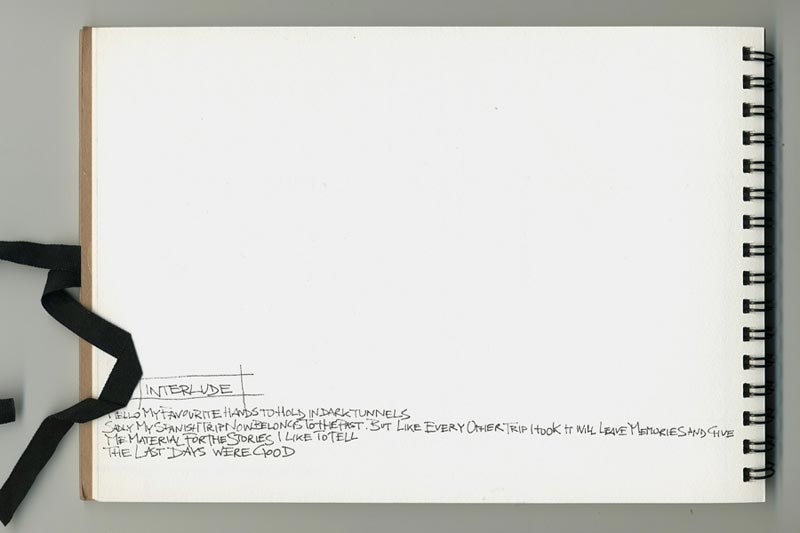 INTERLUDE
HELLO MY FAVOURITE HANDS TO HOLD IN DARK TUNNELS
SADLY MY SPANISH TRIP NOW BELONGS TO THE PAST. BUT LIKE EVERY OTHER TRIP I TOOK IT WILL LEAVE MEMORIES AND GIVE
ME MATERIAL FOR THE STORIES I LIKE TO TELL
THE LAST DAYS WERE GOOD